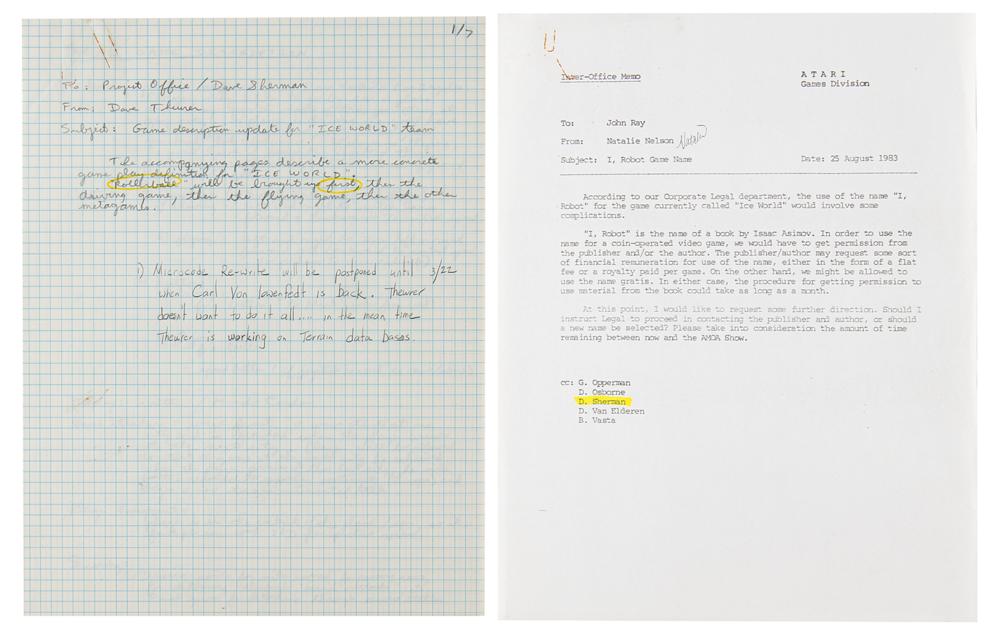 1/7
To: Project Office / Dave Sherman
From: Dave Theurer
Subject: Game description update for "ICE WORLD" team
The accompanying pages describe a more concrete
game play definition for "ICE WORLD".
"Rollerball" will be brought up first, then the
driving game, then the flying game, then the other
metagames.
1) Microcode Re-write will be postponed until 3/22
when Carl Von lowenfedt is back. Theurer
doesn't want to do it all.... in the mean time
Theurer is working on Terrain data bases.
Inter-Office Memo
ATARI
Games Division
To: John Ray
From: Natalie Nelson Natalie
Subject: I, Robot Game Name Date: 25 August 1983
According to our Corporate Legal department, the use of the name "I,
Robot" for the game currently called "Ice World" would involve some
complications.
"I, Robot" is the name of a book by Isaac Asimov. In order to use the
name for a coin-operated video game, we would have to get permission from
the publisher and/or the author. The publisher/author may request some sort
of financial remuneration for use of the name, either in the form of a flat
fee or a royalty paid per game. On the other hand, we might be allowed to
use the name gratis. In either case, the procedure for getting permission to
use material from the book could take as long as a month.
At this point, I would like to request some further direction. Should I
instruct Legal to proceed in contacting the publisher and author, or should
a new name be selected? Please take into consideration the amount of time
remaining between now and the AMOA Show.
cc: G. Opperman
D. Osborne
D. Sherman
D. Van Elderen
B. Vasta